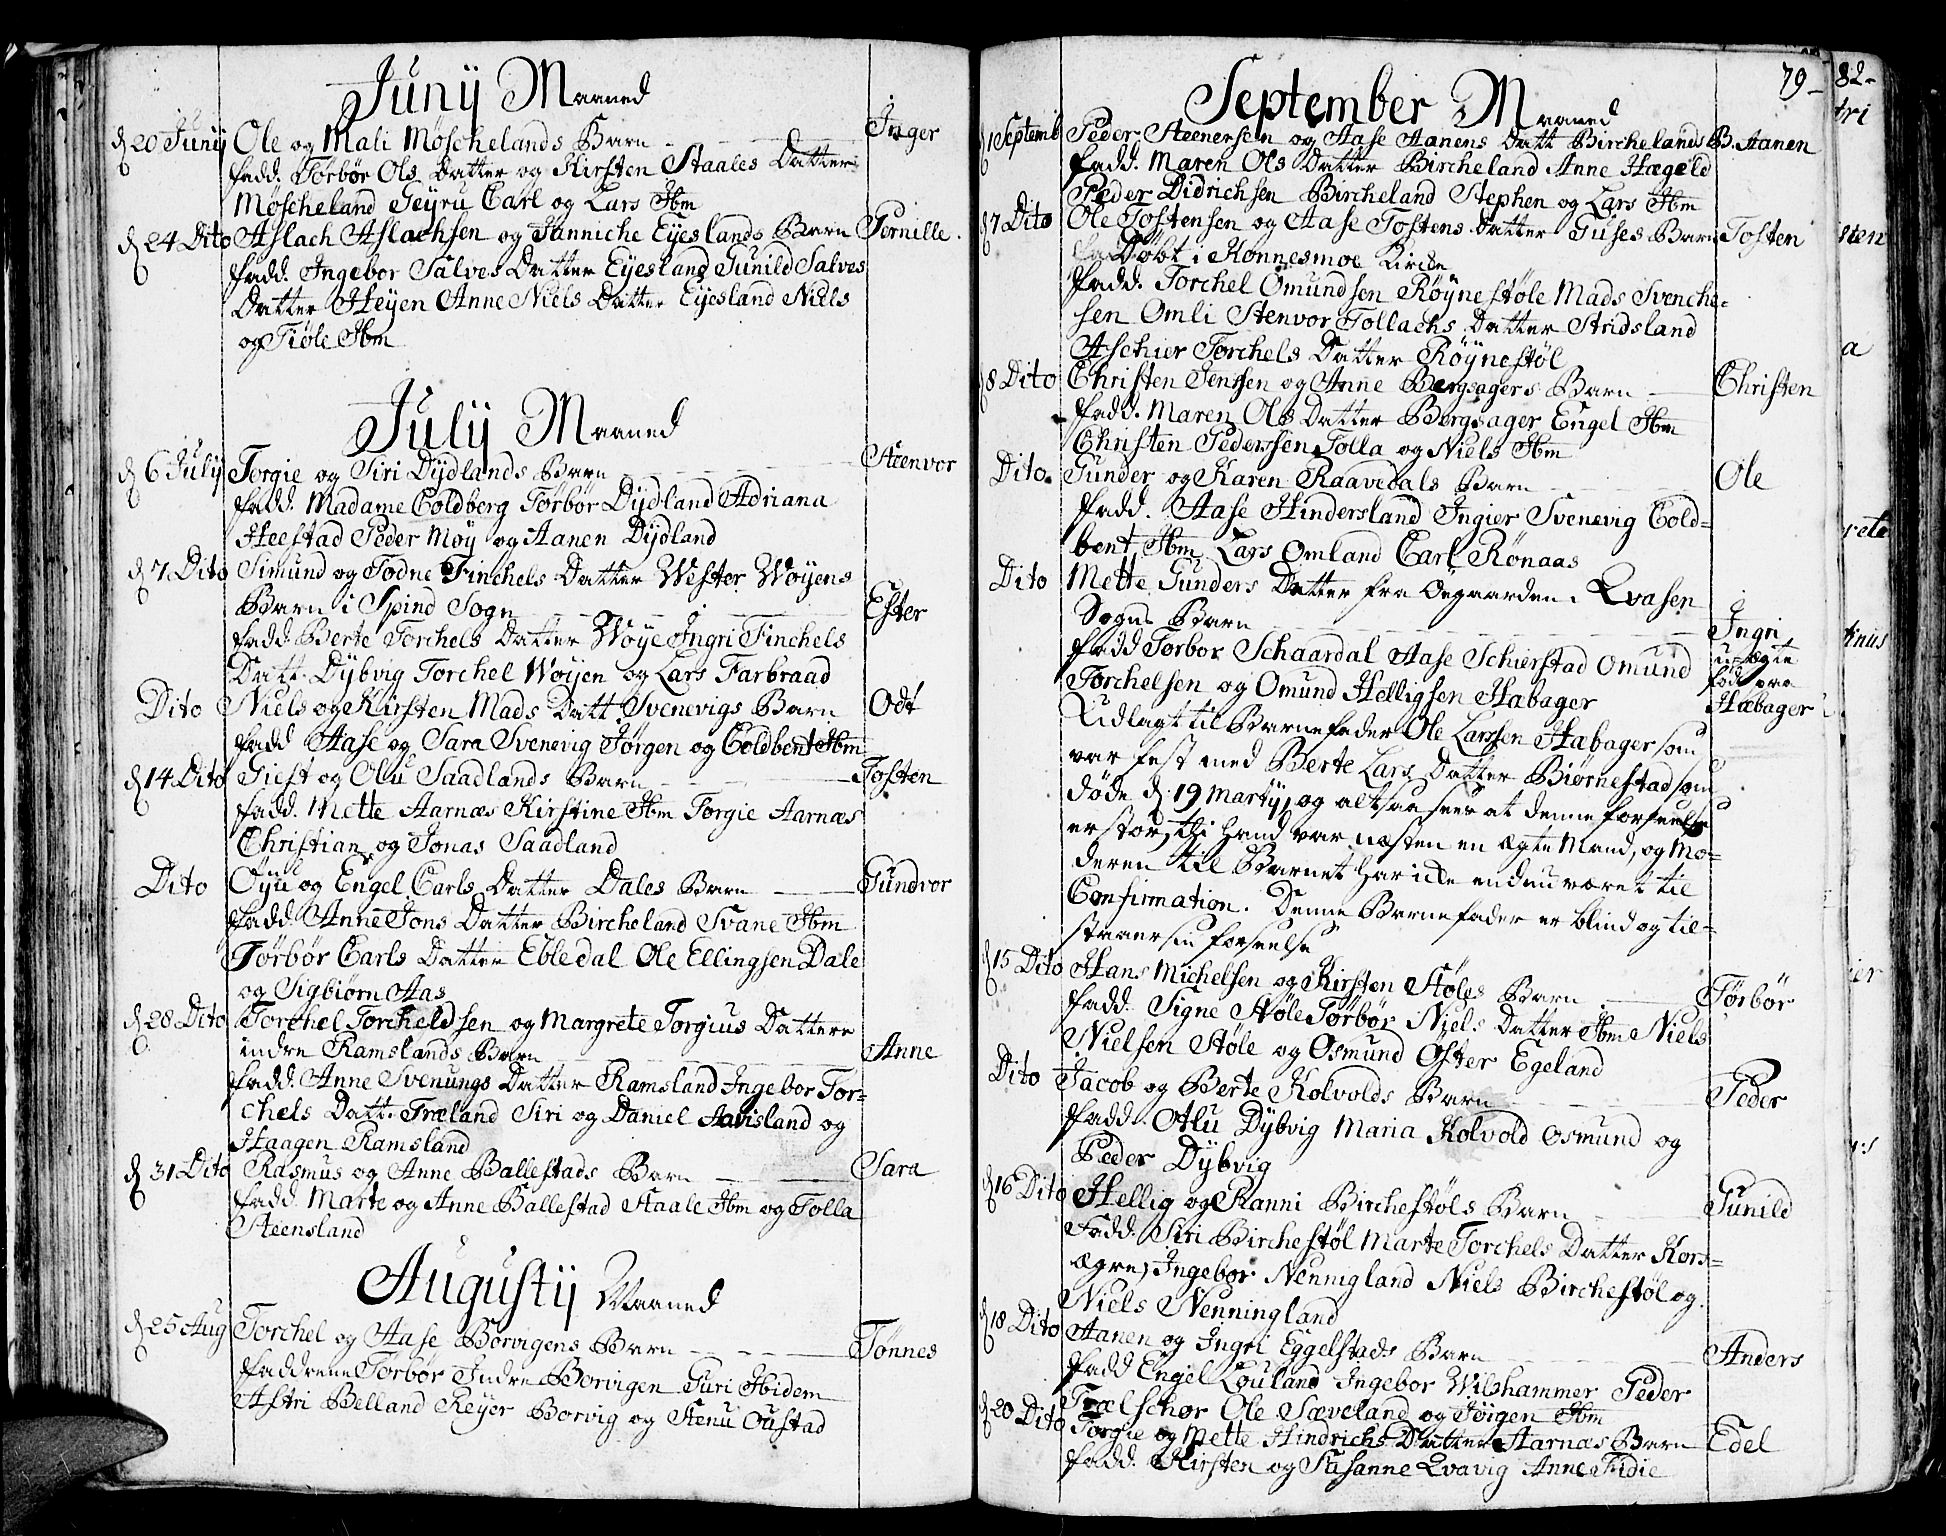 Junij Maaned
d 20 Junij Ole og Mali Möschelands Barn Inger
fadd. Törbör Ols Datter og Kirsten Staales Datter
Möscheland Geyru Carl og Lars Ibm
d 24 Dito Aslach Aslachsen og Janniche Eyeslands Barn Pernille.
fadd. Ingebor Salves Datter Eyesland Gunild Salves
Datter Heyen Anne Niels Datter Eyesland Niels
og Tiöle Ibm
Julij Maaned
d 6 July Torgie og Siri Dydlands Barn Steenvor
fadd. Madame Coldberg Törbör Dydland Adriana
Heestad Peder Moy og Aanen Dydland
d 7. Dito Simund og Todne Finchels Datter Wester Woyens
Barn i Spind Sogn Ester
fadd. Berte Torchels Datter Woye Ingri Finchels
Datt. Dybvig Torchel Woyen og Lars Farbraad
Dito Niels og Kirsten Mads Datt. Svenevigs Barn Odt
fadd Aase og Sara Svenevig Jörgen og Coldbent Ibm
d 14 Dito Giest og Olu Saadlands Barn Tosten
fadd. Mette Aarnæs Kirstine Ibm Torgie Aarnæs
Christian og Jonas Saadland
Dito Öyu og Engel Carls Datter Dales Barn Gundvor
fadd. Anne Jons Datter Bircheland Svane Ibm
Törbör Carls Datter Ebledal Ole Ellingsen Dale
og Sigbiörn Aas
d 28 Dito Torchel Torcheldsen og Margrete Torgius Datter
indre Ramslands Barn Anne
fadd. Anne Svenungs Datter Ramsland Ingebor Tor=
chels Datt. Træland Siri og Daniel Aavisland og
Haagen Ramsland
d 31 Dito Rasmus og Anne Ballestads Barn Sara
fadd. Marte og Anne Ballestad Staale Ibm og Tolla
Steensland
Augustij Maaned
d 25 Aug Torchel og Aase Borvigens Barn Tönnes
faddrene Torbör Indre Borvigen Guri Ibidem
Astri Belland Reyer Borvig og Stenu Oustad
79
September Maaned
d 1 Septemb Peder Steenersen og Aase Aanens Datt Birchelands B. Aanen
fadd. Maren Ols Datter Bircheland Anne Hægeld
Peder Didrichsen Bircheland Stephen og Lars Ibm
d 7 Dito Ole Tostensen og Aase Tostens Datter Guses Barn Tosten
Döbt i Konnesmoe Kirche
fadd. Torchel Omundsen Röynestöle Mads Svenche=
sen Omli Stenvor Tollachs Datter Stridsland
Aschier Torchels Datter Röynestöl
d 8 Dito Christen Jenssen og Anne Bergsagers Barn Christen
fadd. Maren Ols Datter Bergsager Engel Ibm
Christen Pederssen Tolla og Niels Ibm
Dito. Gunder og Karen Raavedals Barn Ole
fadd. Aase Hindersland Ingier Svenevig Cold=
bent Ibm Lars Omland Carl Rönaas
Dito Mette Gunders Datter fra Öegaarden i Qvasen
Sogns Barn Ingri
u=ægte
fadd Torbor Schaardal Aase Schierstad Omund
Torchelsen og Omund Helligsen Hæbager Hæbager
Udlagt til Barnefader Ole Larssen Hæbager som
var fest med Berte Lars Datter Biörnestad som
döde d. 19 Martij, og altsaa sees at denne forseelse
er stor, thi hand var næsten en ægte Mand, og Mo=
deren til Barnet har icke endnu været til
Confirmation. Denne Barnefader er blind og til=
staaer sin forseelse
d 15 Dito Hans Michelsen og Kirsten Stöles Barn Törbör
fadd. Signe Stöle Törbör Niels Datter Ibm Niels
Nielsen Stöle og Osmund Öster Egeland
Dito Jacob og Berte Kolvolds Barn Peder
fadd. Olu Dybvig Maria Kolvold Osmund og
Peder Dybvig
d 16 Dito Hellig og Ranni Birchestöls Barn Gunild
Fadd. Siri Birchestöl Marte Torchels Datter Kors=
ægre, Ingebor Nennigland Niels Birchestöl og
Niels Nenningland
d 18 Dito Aanen og Ingri Eggelstads Barn Anders
fadd Engel Louland Ingebor Wibhammer Peder
Trælschor Ole Sæveland og Jörgen Ibm
d 20 Dito Torgie og Mette Hindrichs Datter Aarnæs Barn Edel
fadd. Kirsten og Susanne Qvavig Anne Fidie